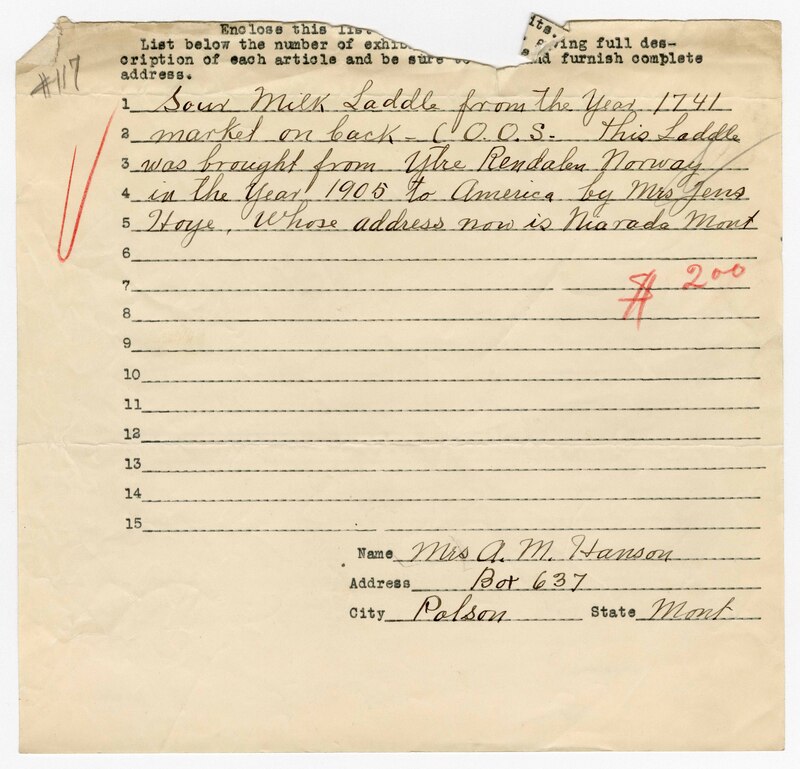 Enclose this list its.
List below the number of exhib ving full des-
cription of each article and be sure to nd furnish complete
address.
#117
1 Sour Milk Laddle from the Year 1741
2 market on back - C O.O.S. This Laddle
3 was brought from Ytre Rendalen Norway
4 in the Year 1905 to America by Mrs Jens
5 Hoye, Whose address now is Niarada Mont
6
7 $ 2 00
8
9
10
11
12
13
14
15
Name Mrs A. M. Hanson
Address Box 637
City Polson State Mont